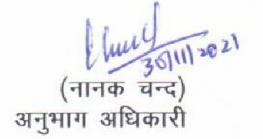 30/11/2021
(नानक चन्द)
अनुभाग अधिकारी